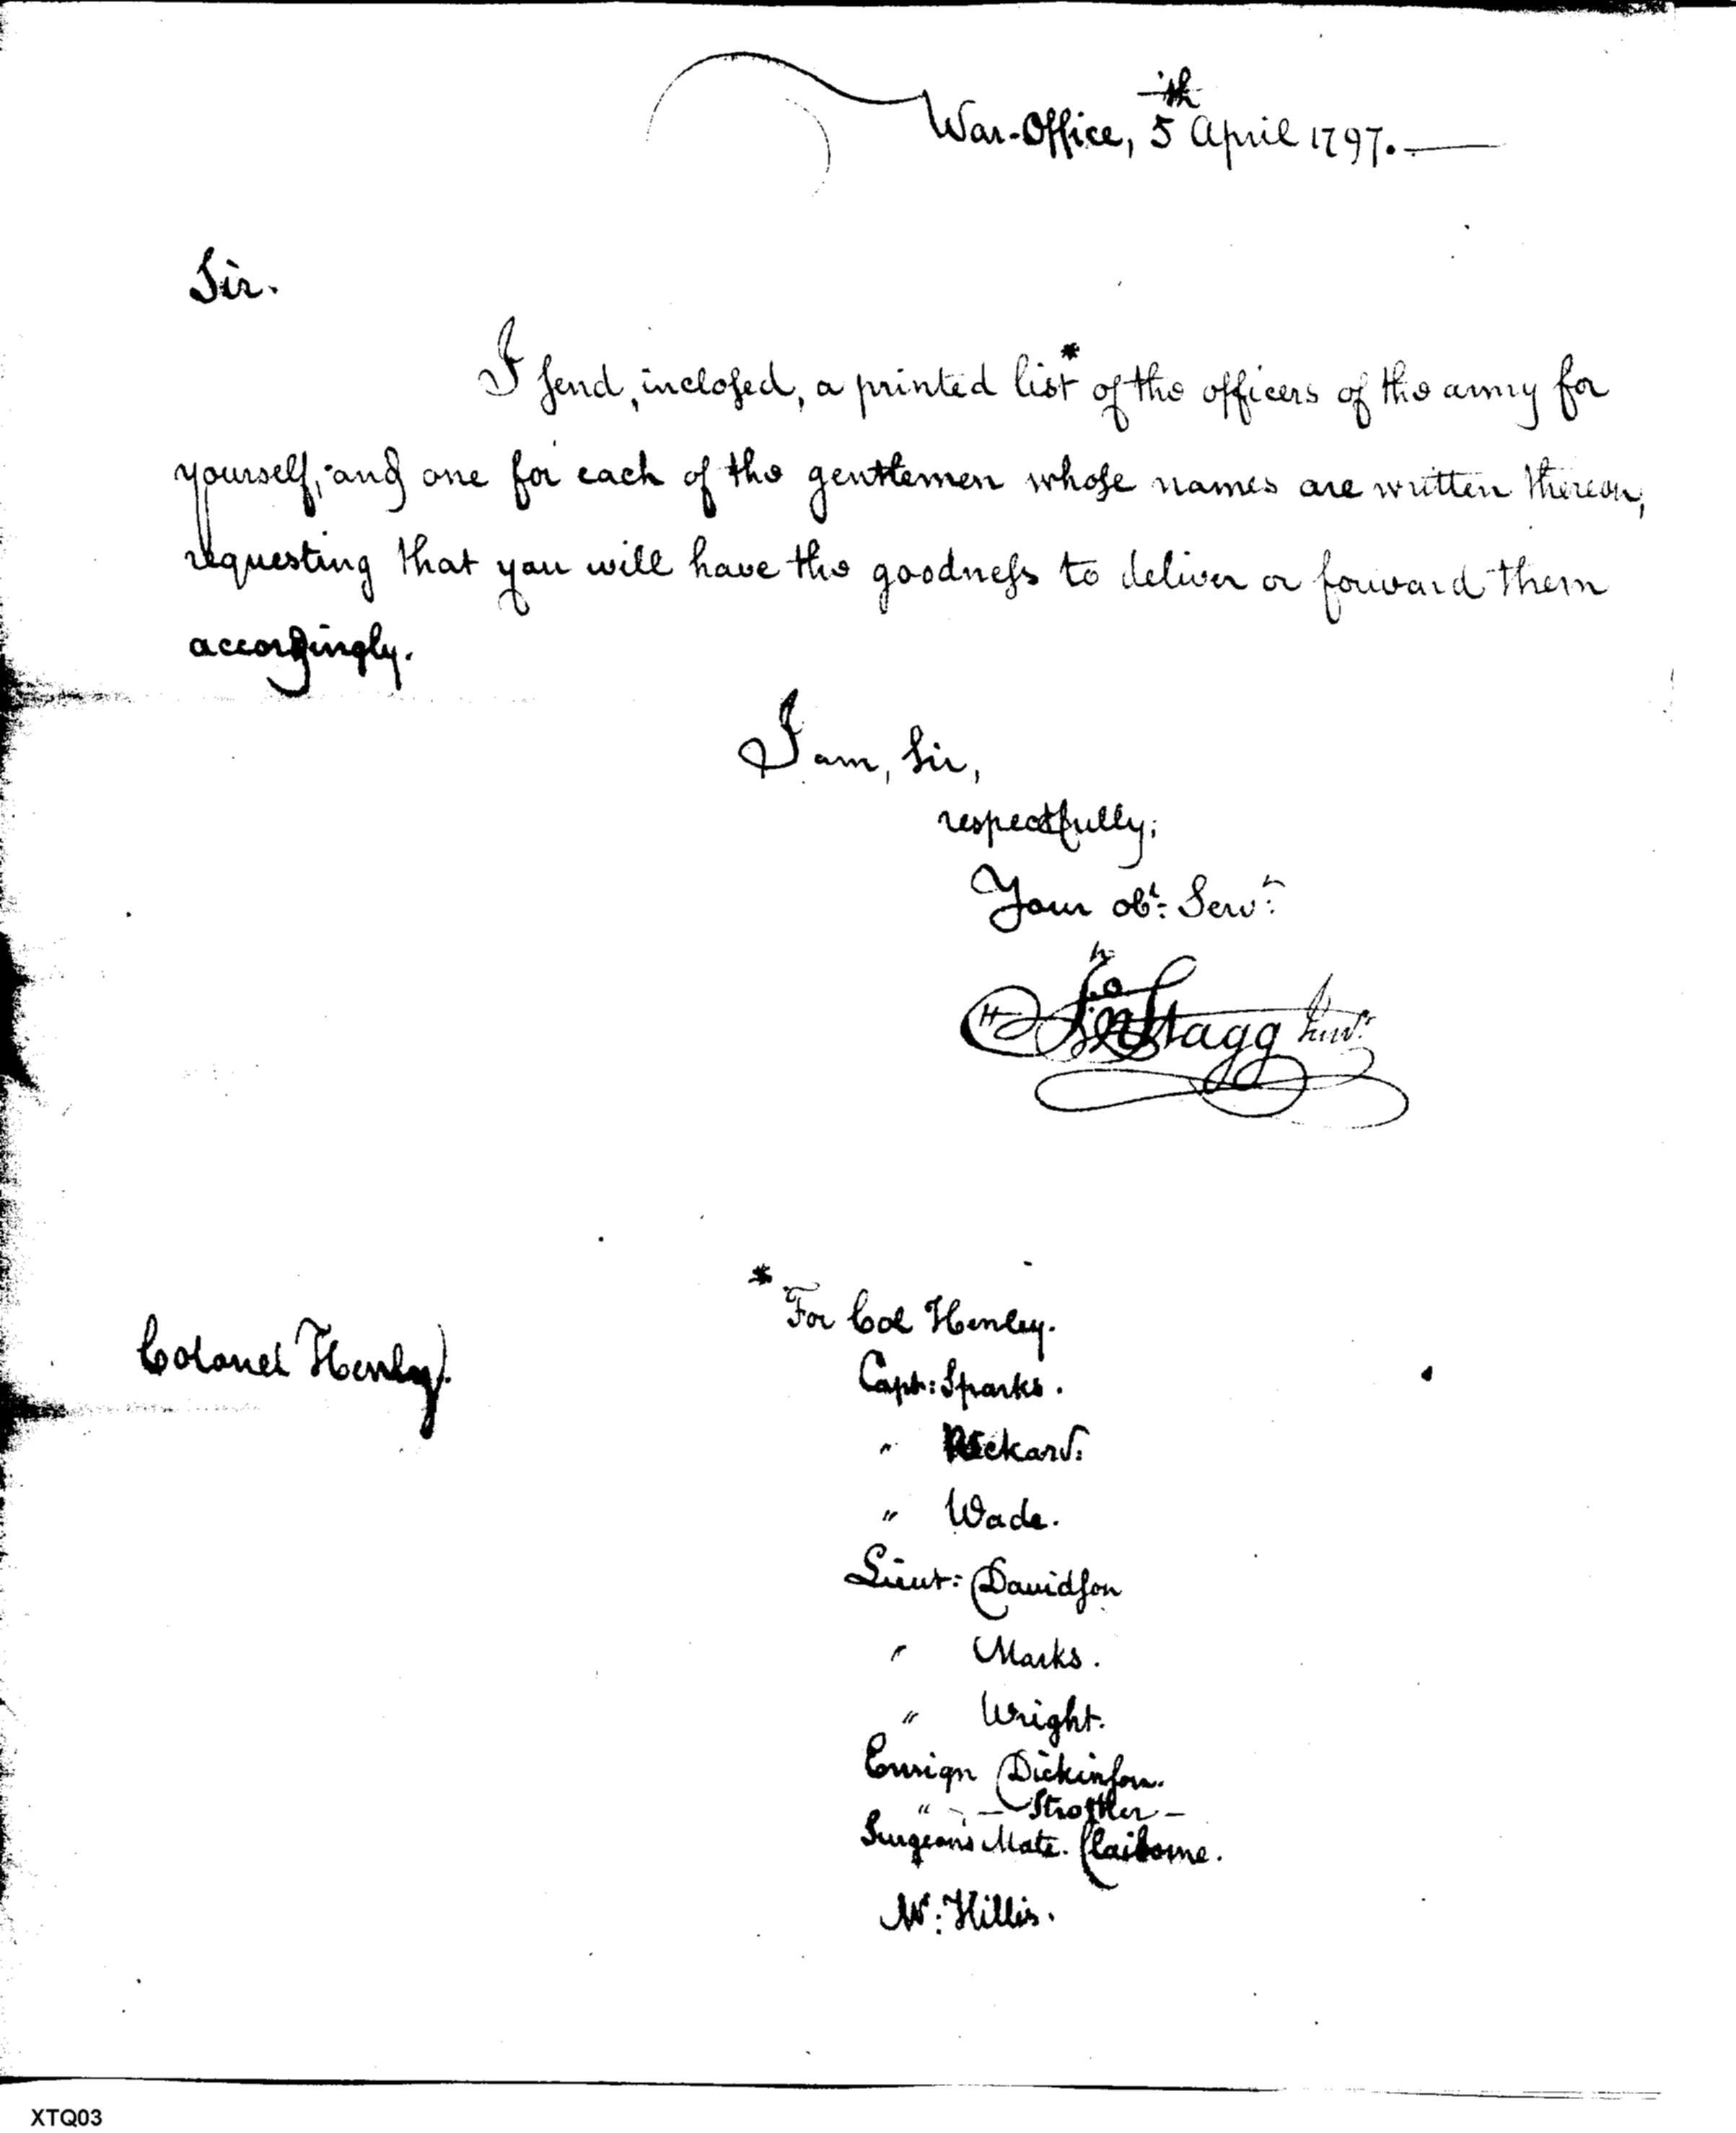 War-Office, 5th April 1797.
Sir.
I send, inclosed, a printed list* of the officers of the army for
yourself; and one for each of the gentlemen whose names are written thereon,
requesting that you will have the goodness to deliver or forward them
accordingly.
I am, Sir,
respectfully,
Your obt: Servt:
Stagg Junr:
* For Col Henley.
Colonel Henley.
Capt: Sparks.
" Rickard.
" Wade.
Lieut: Davidson
" Marks.
" Wright.
Ensign Dickinson.
" — Strother —
Surgeons Mate. Claiborne.
Mr: Hillis.
XTQ03